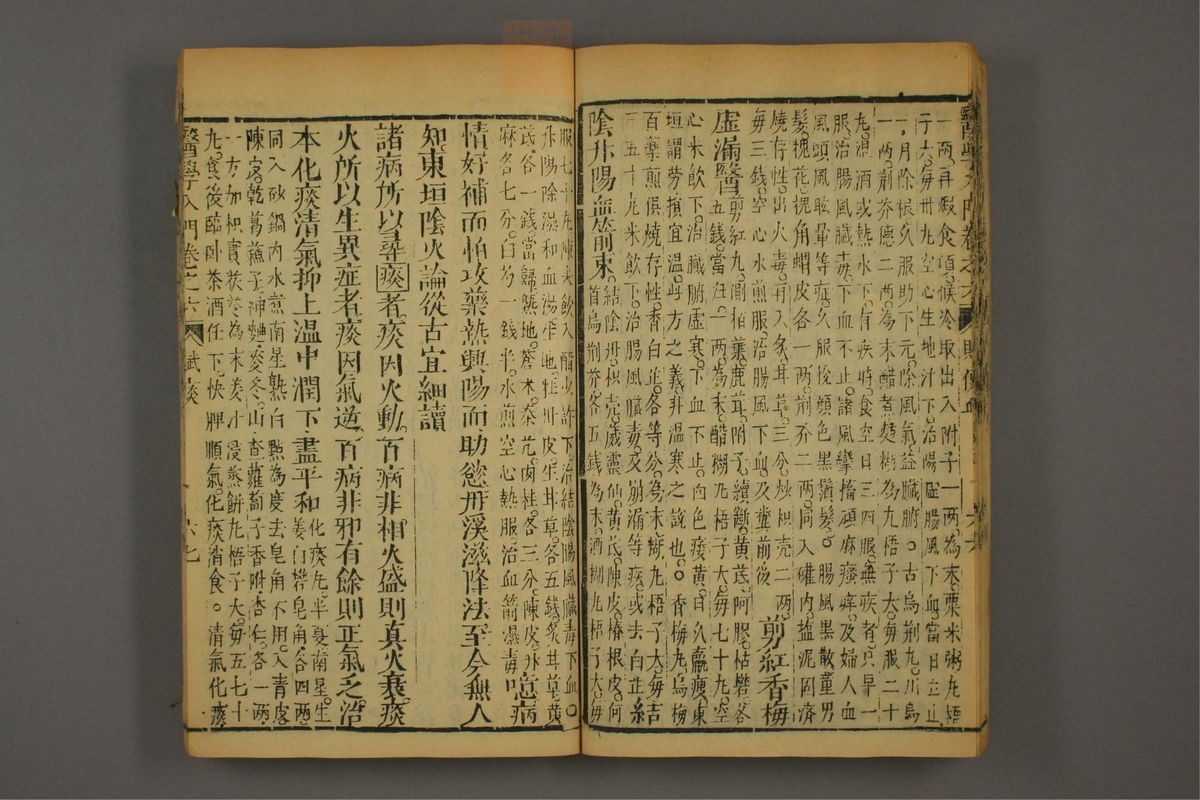 一兩再煅食頃候冷取出入附子一兩為末粟米粥丸梧
子大每卅丸空心生地汁下治陽症腸風下血當日立止
一月除根久服助下元除風氣益臟腑○古烏荊丸川烏
一兩荊芥穗二兩為末醋煮麫糊為丸梧子大每服二十
丸溫酒或熱水下有疾時食空日三四服無疾者只早一
服治腸風臟毒下血不止諸風攣搐頑麻癮痒及婦人血
風頭風眩暈等症久服悛顏色黑鬚髮○腸風黑散董男
髮槐花槐角蝟皮各一兩荊芥二兩同入礶內塩泥固濟
燒存性出火毒再入炙甘草三分炒枳壳二兩
每三錢空心水煎服治腸風下血及糞前後剪紅香梅
虛漏醫剪紅丸側柏葉鹿茸附子續斷黃芪阿膠枯礬各
五錢當歸一兩為末醋糊丸梧子大每七十丸空
心米飲下治臟腑虛寒下血不止面色痿黃日久羸瘦東
垣謂勞損宜溫乃方之義非溫寒之說也○香梅丸烏梅
百藥煎俱燒存性香白芷各等分為末糊丸梧子大每
三五十丸米飲下治腸風臟毒及崩漏等疾或去白芷結
陰升陽血箭束結陰丹枳壳威靈仙黃芪陳皮椿根皮何
首烏荊芥各五錢為末酒糊丸梧子大每
服七十丸陳米飲入醋少許下治結陰陽風臟毒下血○
升陽除濕和血湯生地牡丹皮生甘草各五錢炙甘草黃
芪各一錢當歸熟地蒼朮秦艽肉桂各三分陳皮升
麻各七分白芍一錢半水煎空心熱服治血箭濕毒噫病
情好補而怕攻藥熱興陽而助慾丹溪滋降法至今無人
知東垣陰火論從古宜細讀
諸病所以尋痰者痰因火動百病非相火盛則真火衰痰
火所以生異症者痰因氣逆百病非邪有餘則正氣乏治
本化痰清氣抑上溫中潤下盡平和化痰丸半夏南星生
姜白礬皂角各四兩
同入砂鍋內水煮南星熟白點為度去皂角不用入青皮
陳皮乾葛蘇子神麯麥冬山查蘿蔔子香附杏仁各一兩
一方加枳實茯苓為末姜汁浸蒸餅丸梧子大每五七十
丸食後臨卧茶酒任下快脾順氣化痰消食○清氣化痰
醫學入門卷之六
賦痰
六七